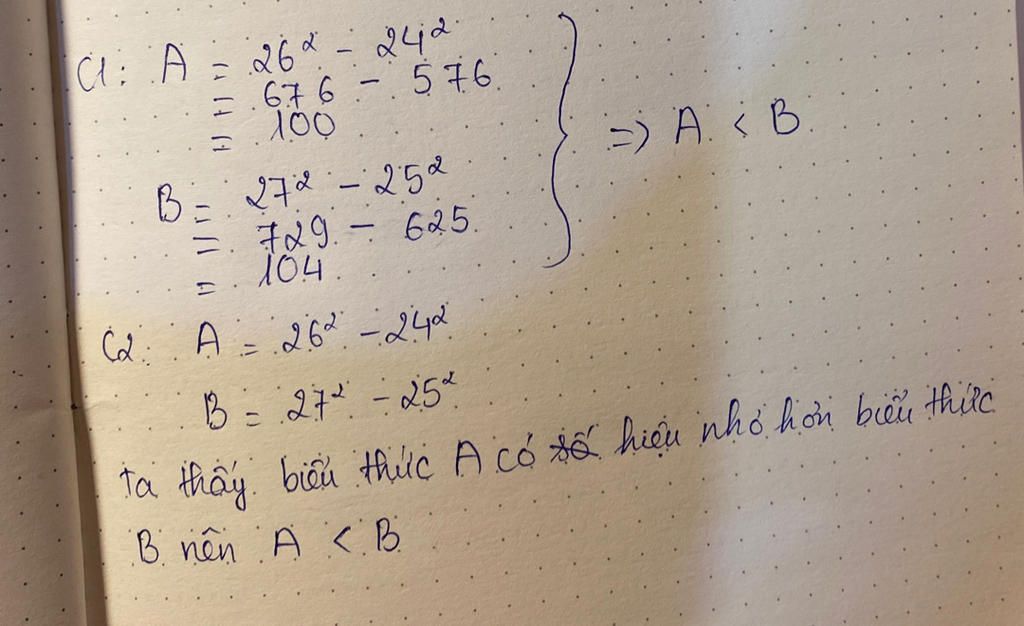 C1: A = 26² - 24²
= 676 - 576
= 100
=> A < B
B = 27² - 25²
= 729 - 625
= 104
C2: A = 26² - 24²
B = 27² - 25²
Ta thấy biểu thức A có hiệu nhỏ hơn biểu thức
B nên A < B